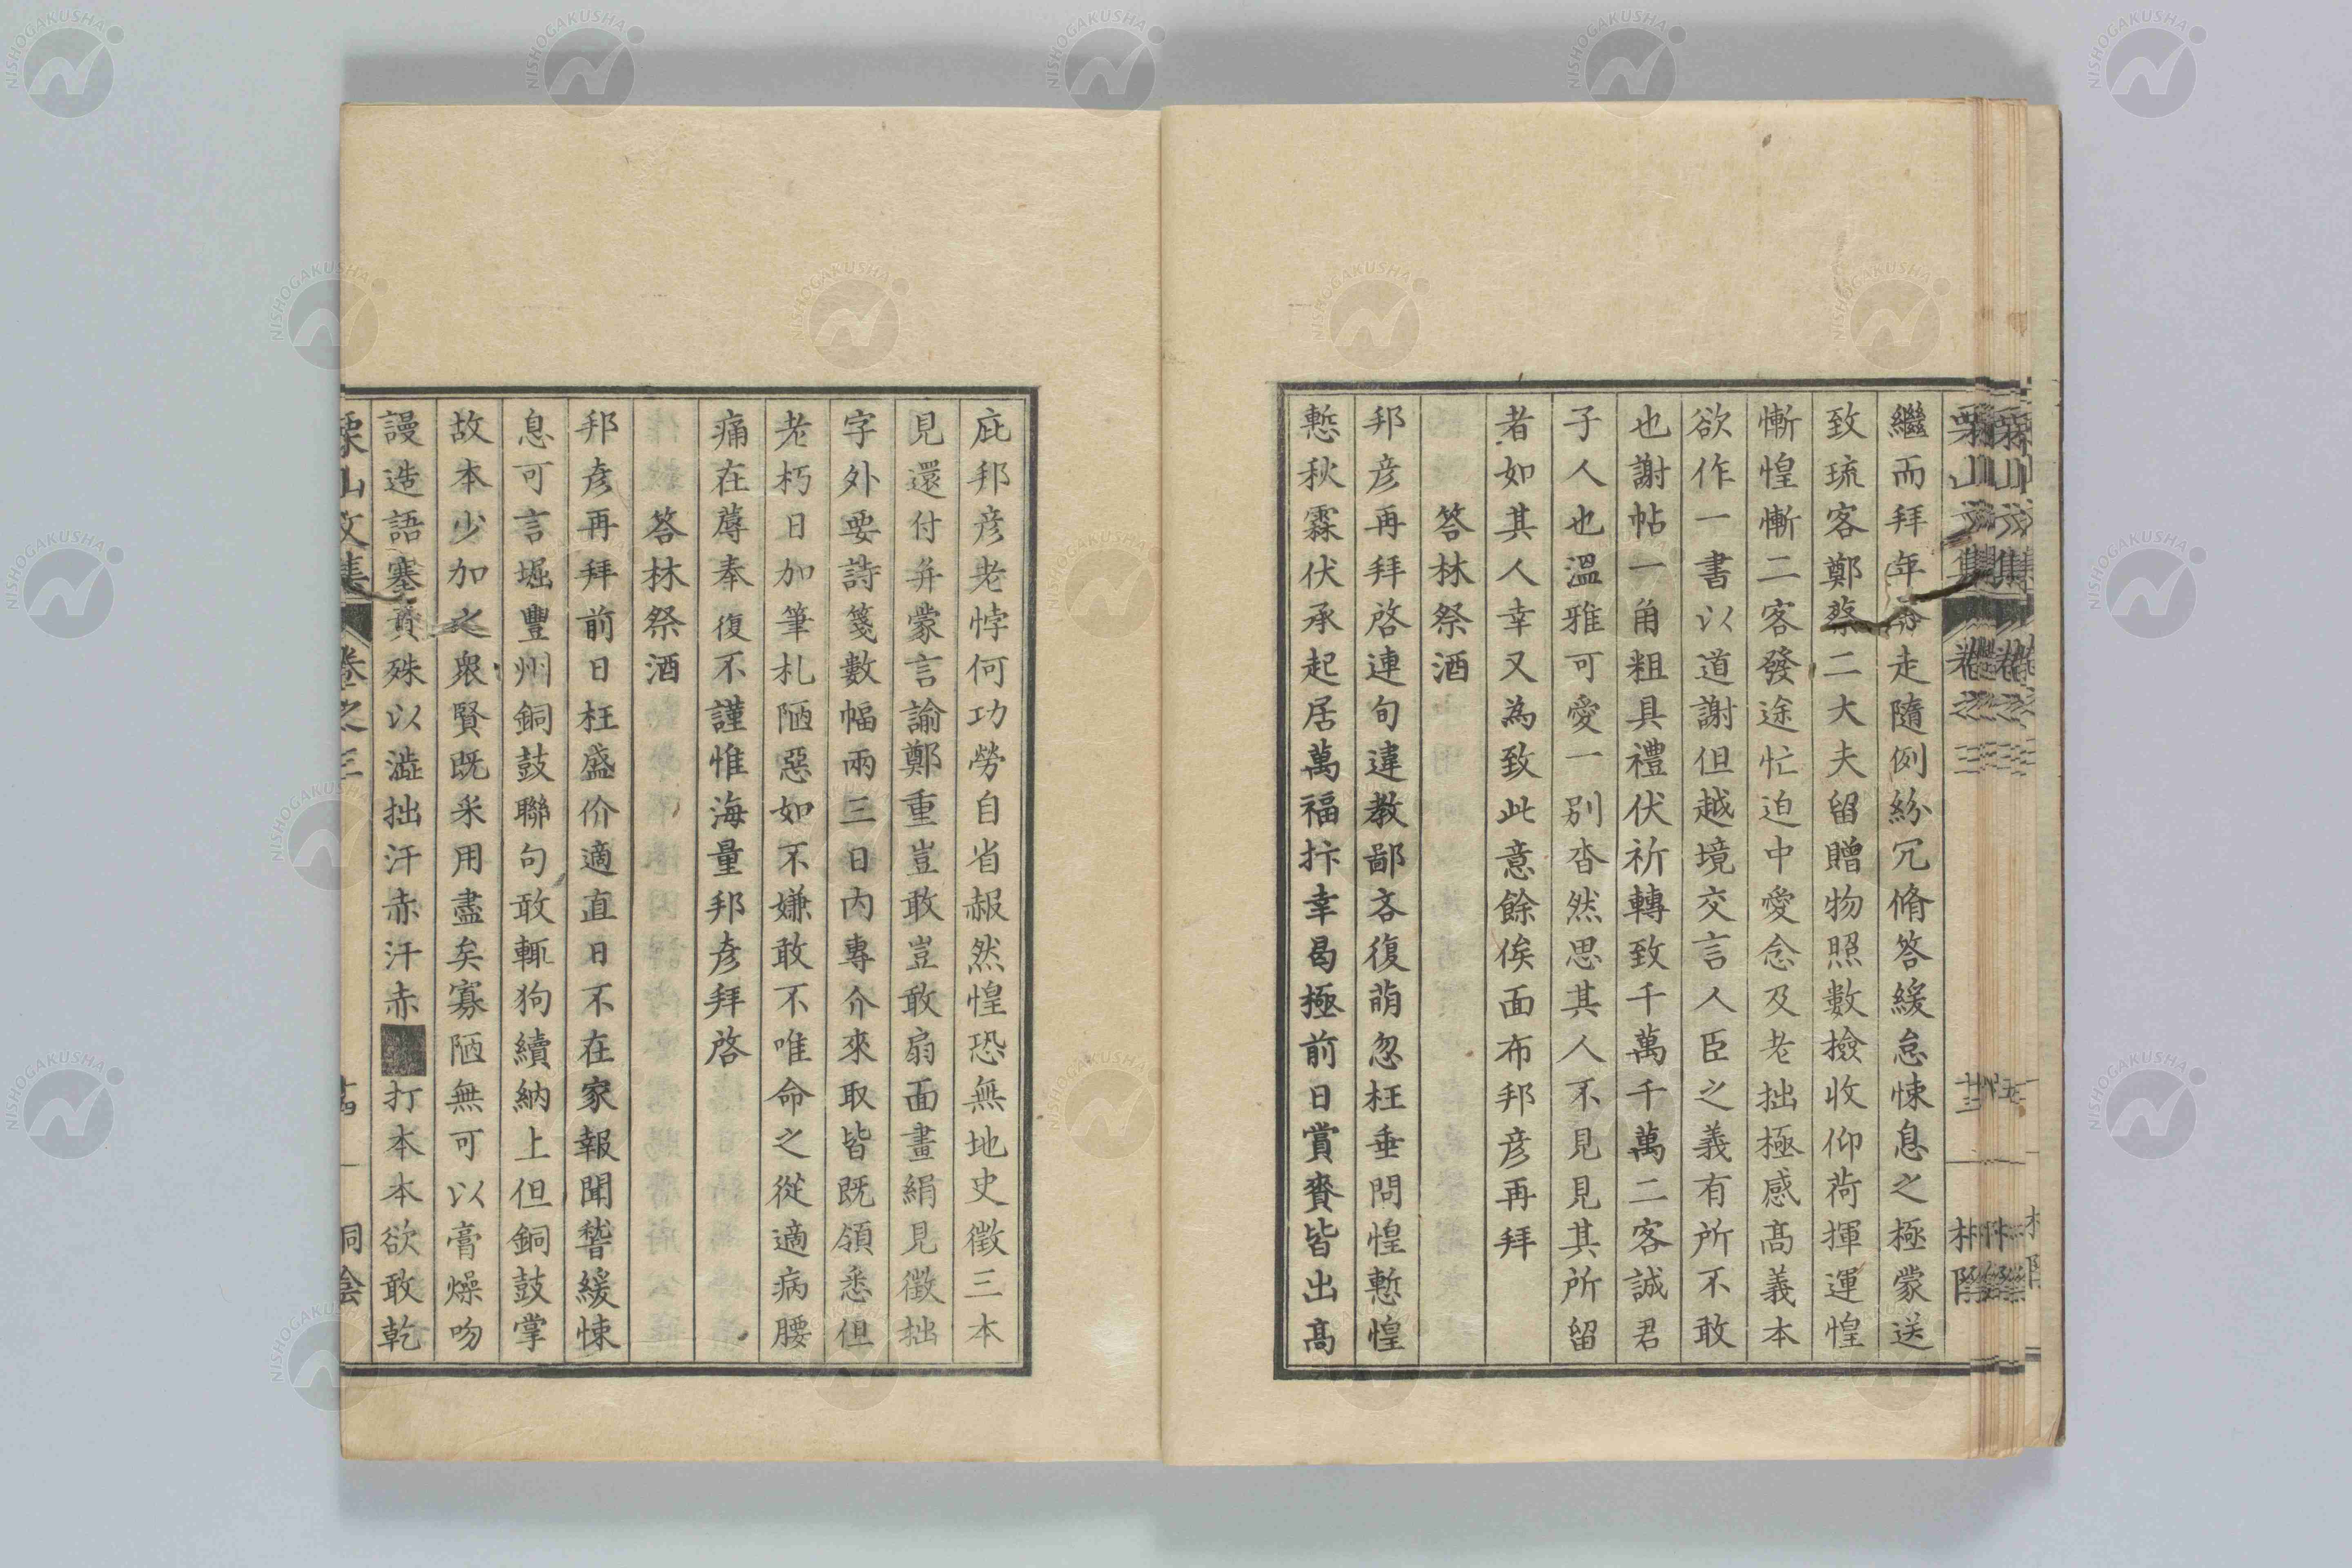 繼而拜年命走隨例紛冗脩答緩怠悚息之極蒙送
致琉客鄭蔡二大夫留贈物照數撿收仰荷揮運惶
慚惶慚二客發途忙迫中愛念及老拙極感髙義本
欲作一書以道謝但越境交言人臣之義有所不敢
也謝帖一角粗具禮伏祈轉致千萬千萬二客誠君
子人也溫雅可愛一別杳然思其人不見見其所留
者如其人幸又為致此意餘俟面布邦彦再拜
答林祭酒
邦彦再拜啓連旬違教鄙吝復萌忽枉垂問惶慙惶
慙秋霖伏承起居萬福抃幸曷極前日賞賚皆出髙
庇邦彦老悖何功勞自省赧然惶恐無地史徵三本
見還付弁蒙言諭鄭重豈敢豈敢扇面畫絹見徵拙
字外要詩箋數幅兩三日内專介來取皆既領悉但
老朽日加筆札陋惡如不嫌敢不唯命之從適病腰
痛在蓐奉復不謹惟海量邦彦拜啓
答林祭酒
邦彦再拜前日枉盛价適直日不在家報聞警緩悚
息可言堀豐州銅鼓聯句敢輒狗續納上但銅鼓掌
故本少加之衆賢既采用盡矣寡陋無可以膏燥吻
謾造語塞責殊以澁拙汗赤汗赤打本本欲敢乾
栗山文集 卷之三
NISHOGAKUSHA